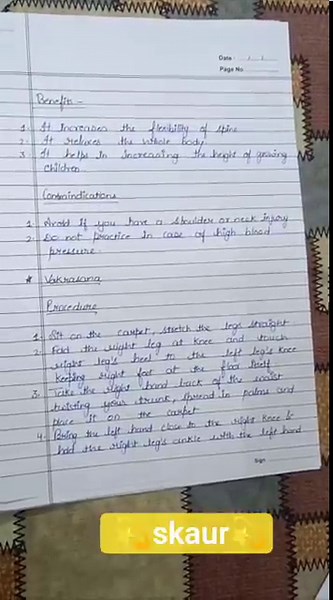 Date :
Page No
Benefits -
1. It increases the flexibility of spine
2. It relaxes the whole body
3. It helps in increasing the height of growing
children.
Contraindications
1. Avoid if you have a shoulder or neck injury
2. Do not practice in case of high blood
pressure.
* Vakrasana
Procedure
1. Sit on the carpet, stretch the legs straight
2. Fold the right leg at knee and touch
right leg's heel to the left leg's knee
keeping right foot at the floor itself
3. Take the right hand back of the waist
twisting your trunk, spread in palms and
place it on the carpet
4. Bring the left hand close to the right knee &
hold the right leg's ankle with the left hand
Sign
skaur